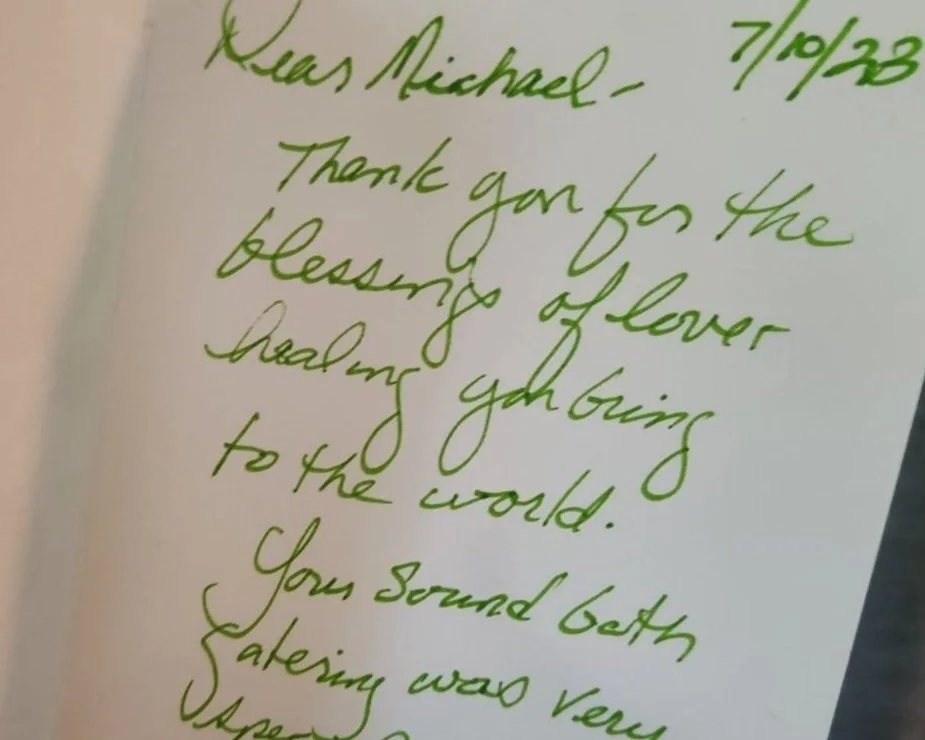 Dear Michael- 7/10/23
Thank you for the
blessings of lover
healing you bring
to the world.
Your Sound bath
gatering was very